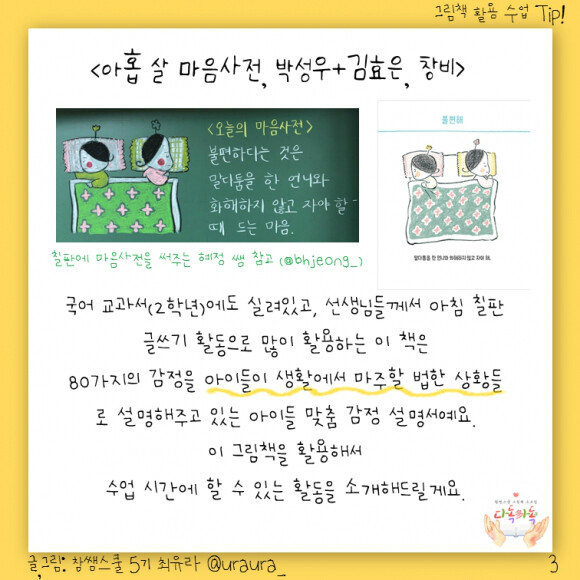 그림책 활용 수업 Tip!
<아홉 살 마음사전, 박성우+김효은, 창비>
<오늘의 마음사전>
불편하다는 것은
말다툼을 한 언니와
화해하지 않고 자야 할
때 드는 마음.
불편해
말다툼을 한 언니와 화해하지 않고 자야 해.
칠판에 마음사전을 써주는 혜정 쌤 참고 (@bhjeong_)
국어 교과서(2학년)에도 실려있고, 선생님들께서 아침 칠판
글쓰기 활동으로 많이 활용하는 이 책은
80가지의 감정을 아이들이 생활에서 마주할 법한 상황들
로 설명해주고 있는 아이들 맞춤 감정 설명서예요.
이 그림책을 활용해서
수업 시간에 할 수 있는 활동을 소개해드릴게요.
다독다독
글,그림: 참쌤스쿨 5기 최유라 @uraura_
3